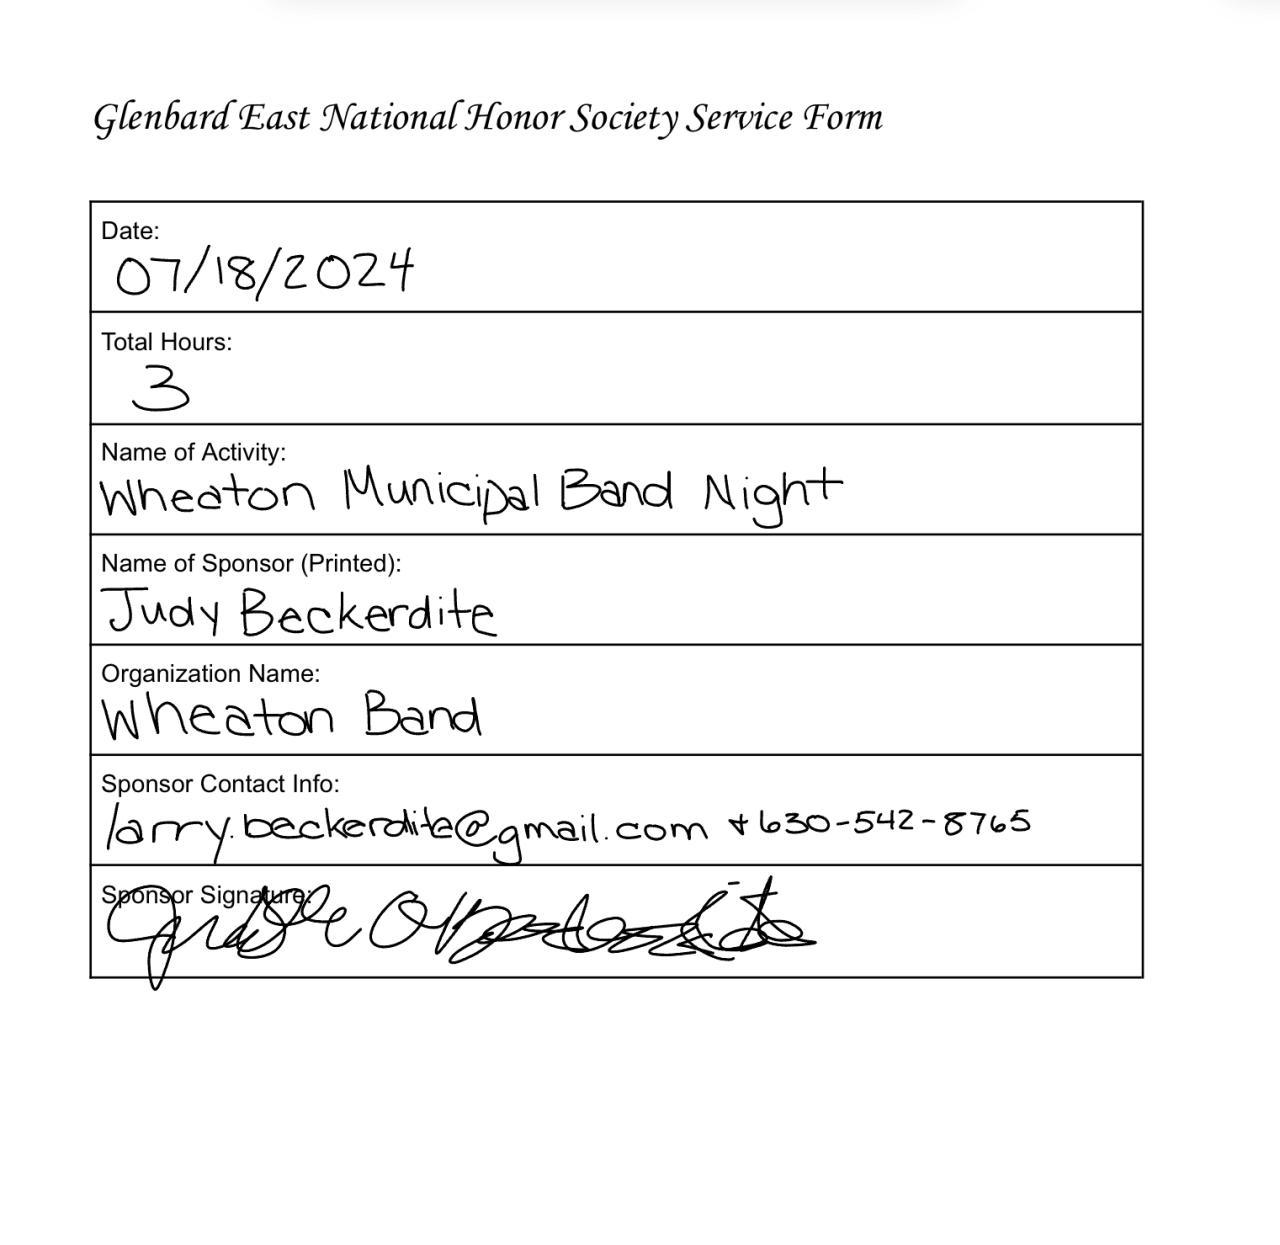 Glenbard East National Honor Society Service Form
Date:
07/18/2024
Total Hours:
3
Name of Activity:
Wheaton Municipal Band Night
Name of Sponsor (Printed):
Judy Beckerdite
Organization Name:
Wheaton Band
Sponsor Contact Info:
larry.beckerdite@gmail.com + 630-542-8765
Sponsor Signature: